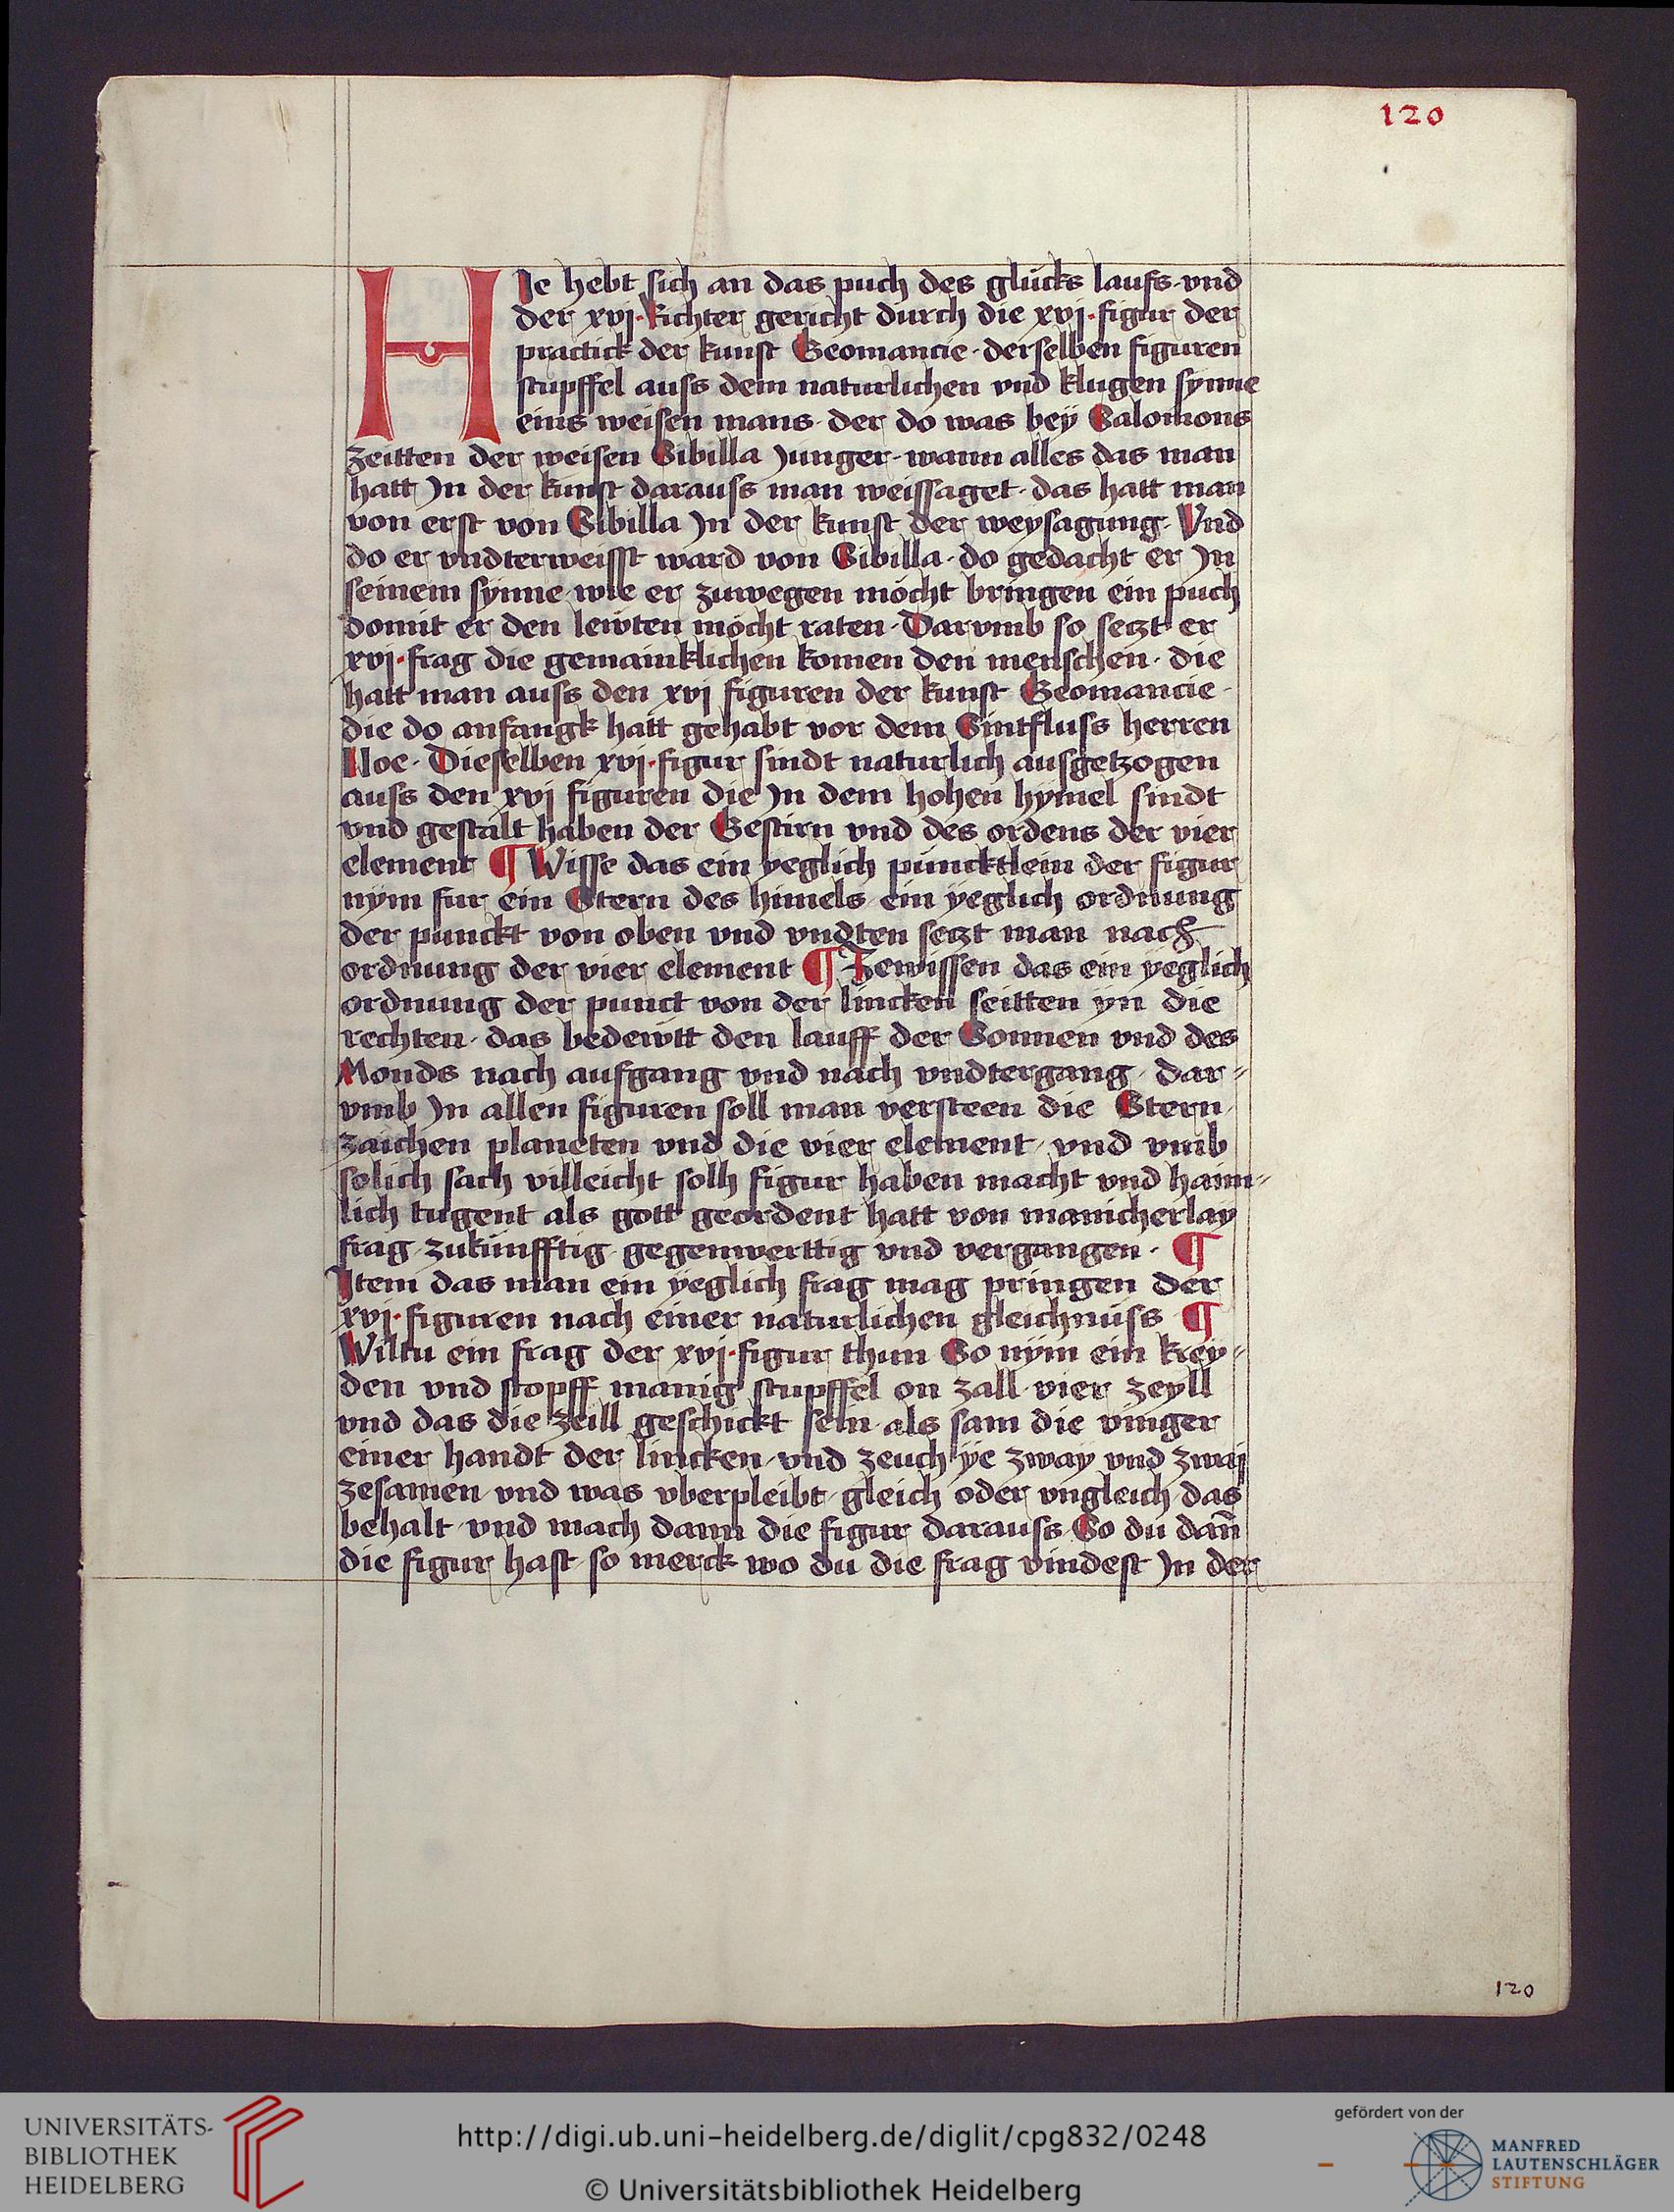 120
HIe hebt sich an das puch des glücks laufs · vnd
der xvj · Richter gericht durch die xvj · figur der
practick der kunst Geomancie · derselben figuren
stupffel auss dem naturlichen vnd klugen synne
eins weisen mans · der do was bey Salomons
zeitten der weisen Sibilla Junger · wann alles das man
hatt Jn der kunst darauss man weissaget · das hatt man
von erst von Sibilla Jn der kunst der weysagung · Vnd
do er vndterweisst ward von Sibilla · do gedacht er Jn
seinem synne wie er zuwegen möcht bringen ein puch
domit er den lewten möcht raten · Darvmb so setzt er
xvj · frag die gemainklichen komen den menschen · die
hatt man auss den xvj figuren der kunst Geomancie ·
die do anfangk hatt gehabt vor dem Sintfluss herren
Noe · Dieselben xvj · figur sindt naturlich ausgetzogen
auss den xvj figuren die Jn dem hohen hymel sindt
vnd gestalt haben der Gestirn vnd des ordens der vier
element ¶ Wisse das ein yeglich püncktlein der figur
nÿm fur ein Stern des himels ein ÿeglich ordnung
der punckt von oben vnd vndten setzt man nach
ordnung der vier element ¶ Zewissen das ein yeglich
ordnung der punct von der lincken seitten ÿn die
rechten · das bedewtt den lauff der Sonnen vnd des
Monds nach aufgang vnd nach vndtergang · dar⸗
vmb Jn allen figuren soll man versteen die Stern
zaichen planeten vnd die vier element · vnd vmb
solich sach villeicht solh figur haben macht vnd haim⸗
lich tugent als gott geordent hatt von manicherlay
frag · zukünfftig gegenwerttig vnd vergangen · ¶
Item das man ein ÿeglich frag mag pringen der
xvj · figuren nach einer naturlichen gleichnüss ¶
Wiltu ein frag der xvj · figur thun So nÿm ein krey⸗
den vnd stopff manig stupffel on zall vier zeyll
vnd das die zeill geschickt sein als sam die vinger
einer handt der lincken · vnd zeuch ÿe zway vnd zwaj
zesamen vnd was vberpleibt gleich oder vngleich das
behalt · vnd mach dann die figur darauss So du dañ
die figur hast so merck wo du die frag vindest Jn der
120
UNIVERSITÄTS-
BIBLIOTHEK
HEIDELBERG
http://digi.ub.uni-heidelberg.de/diglit/cpg832/0248
© Universitätsbibliothek Heidelberg
gefördert von der
MANFRED
LAUTENSCHLÄGER
STIFTUNG